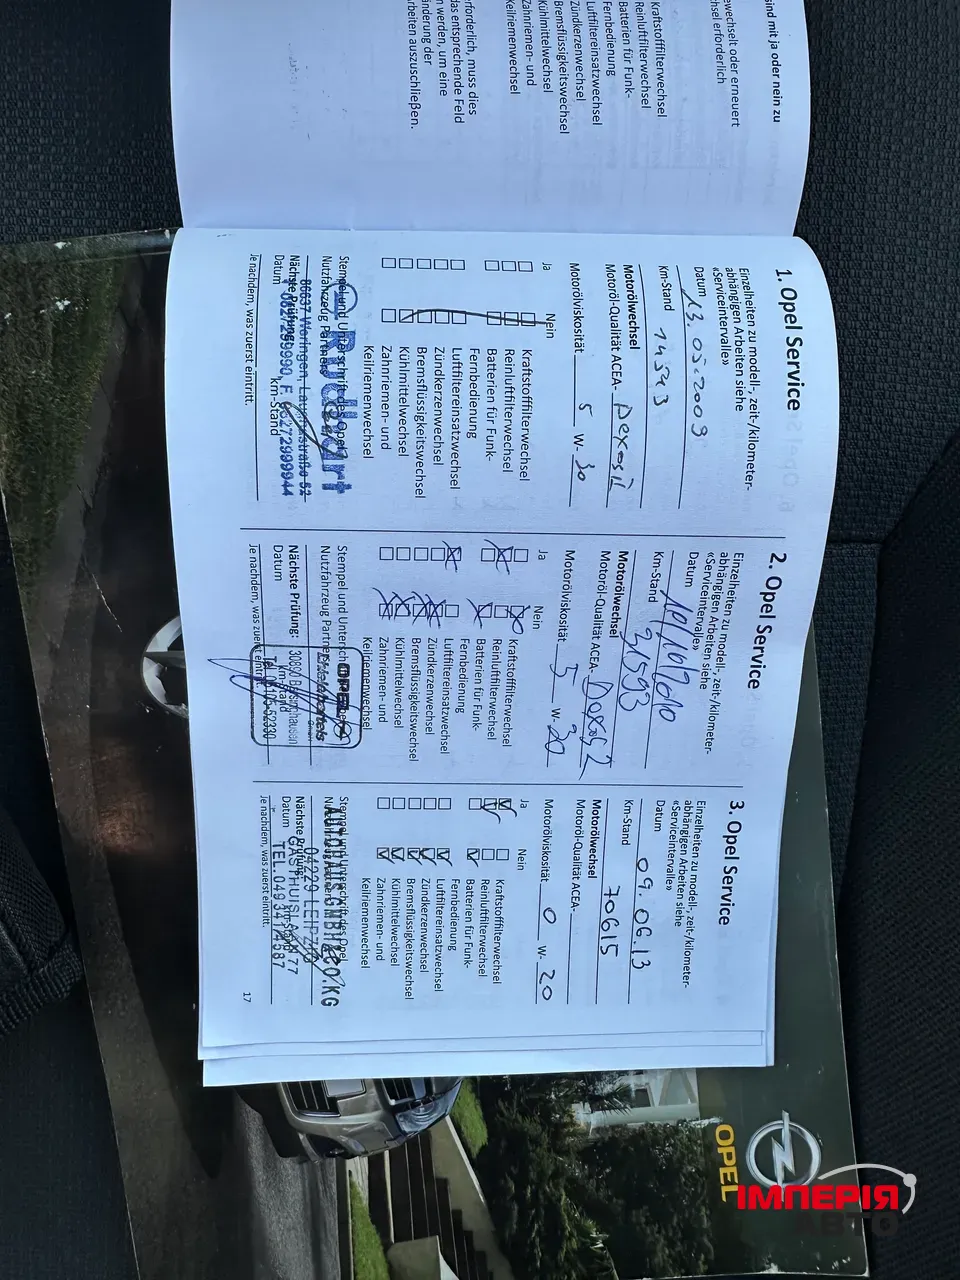 sind mit ja oder nein zu
ewechselt oder erneuert
hsel erforderlich
Kraftstofffilterwechsel
Reinluftfilterwechsel
Batterien für Funk-
Fernbedienung
Luftfiltereinsatzwechsel
Zündkerzenwechsel
Bremsflüssigkeitswechsel
Kühlmittelwechsel
Zahnriemen- und
Keilriemenwechsel
rforderlich, muss dies
das entsprechende Feld
n werden, um eine
änderung der
rbeiten auszuschließen.
1. Opel Service
Einzelheiten zu modell-, zeit-/kilometer-
abhängigen Arbeiten siehe
«Serviceintervalle»
Datum 13.05.2009
Km-Stand 14593
Motorölwechsel
Motoröl-Qualität ACEA-
Motorölviskosität 5 W- 30
Ja Nein
Kraftstofffilterwechsel
Reinluftfilterwechsel
Batterien für Funk-
Fernbedienung
Luftfiltereinsatzwechsel
Zündkerzenwechsel
Bremsflüssigkeitswechsel
Kühlmittelwechsel
Zahnriemen- und
Keilriemenwechsel
Stempel und Unterschrift des Opel
Nutzfahrzeug Partners
Nächste Prüfung:
Datum km-Stand
Je nachdem, was zuerst eintritt.
2. Opel Service
Einzelheiten zu modell-, zeit-/kilometer-
abhängigen Arbeiten siehe
«Serviceintervalle»
Datum 10/10/2010
Km-Stand 31593
Motorölwechsel
Motoröl-Qualität ACEA- Dexos2
Motorölviskosität 5 W- 30
Ja Nein
Kraftstofffilterwechsel
Reinluftfilterwechsel
Batterien für Funk-
Fernbedienung
Luftfiltereinsatzwechsel
Zündkerzenwechsel
Bremsflüssigkeitswechsel
Kühlmittelwechsel
Zahnriemen- und
Keilriemenwechsel
Stempel und Unterschrift des Opel
Nutzfahrzeug Partners
OPEL
Nächste Prüfung:
Datum km-Stand
Je nachdem, was zuerst eintritt.
3. Opel Service
Einzelheiten zu modell-, zeit-/kilometer-
abhängigen Arbeiten siehe
«Serviceintervalle»
Datum 09.06.13
Km-Stand 70615
Motorölwechsel
Motoröl-Qualität ACEA-
Motorölviskosität 0 W- 20
Ja Nein
Kraftstofffilterwechsel
Reinluftfilterwechsel
Batterien für Funk-
Fernbedienung
Luftfiltereinsatzwechsel
Zündkerzenwechsel
Bremsflüssigkeitswechsel
Kühlmittelwechsel
Zahnriemen- und
Keilriemenwechsel
Stempel und Unterschrift des Opel
04229 LEIPZIG
Nächste Prüfung:
Datum
Je nachdem, was zuerst eintritt.
17
OPEL
ІМПЕРІЯ
АВТО